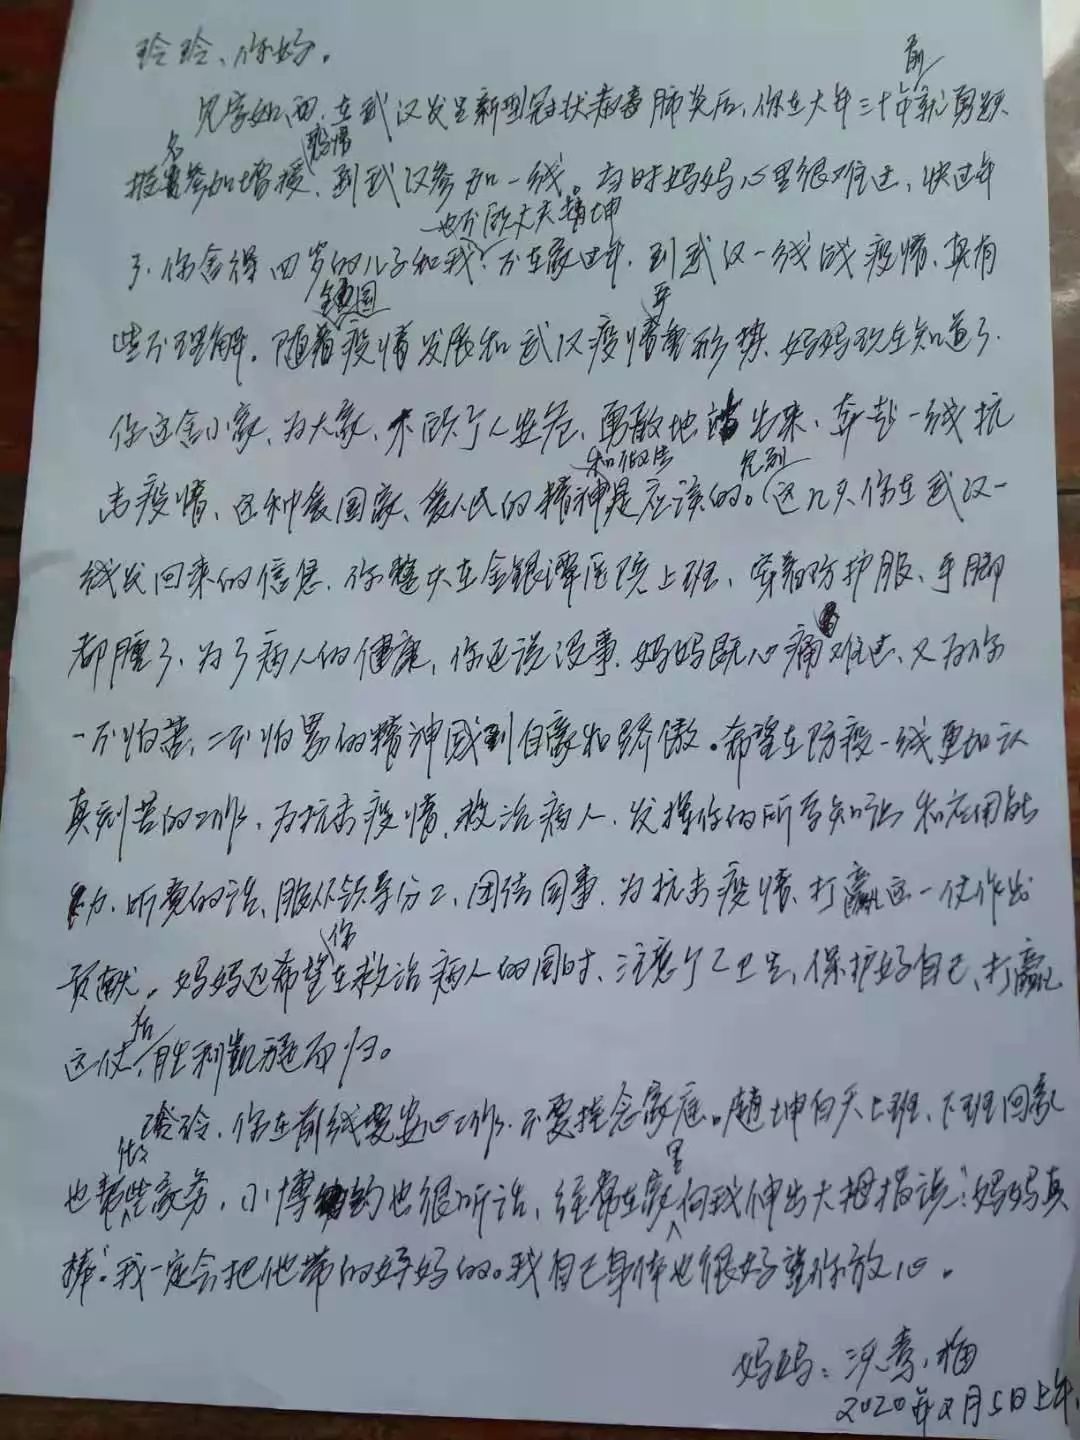 玲玲、你好。
见字如面,在武汉发生新型冠状病毒肺炎后,你在大年三十前就勇敢
报名参加增援疫情、到武汉参加一线。当时妈妈心里很难过,快过年
了,你舍得四岁的儿子和我也不顾丈夫赵坤,不在家过年,到武汉一线战疫情,真有
些不理解。随着全国疫情发展和武汉疫情严重形势,妈妈现在知道了,
你这舍小家、为大家,不顾个人安危,勇敢地站出来,奔赴一线抗
击疫情、这种爱国家、爱人民的精神和做法是应该的。(见到这几天你在武汉一
线发回来的信息,你整天在金银潭医院上班,穿着防护服、手脚
都肿了,为了病人的健康,你还说没事,妈妈既心痛难过、又为你
一不怕苦,二不怕累的精神感到自豪和骄傲。希望在防疫一线更加认
真刻苦的工作,为抗击疫情、救治病人,发挥你的所学知识和应用能
力,听党的话、服从领导分工,团结同事,为抗击疫情、打赢这一仗作出
贡献。妈妈还希望你在救治病人的同时、注意个人卫生,保护好自己、打赢
这仗后,胜利凯旋而归。
玲玲,你在前线要安心工作,不要挂念家庭。赵坤白天上班、下班回家
也帮做些家务,小博约也很听话,经常在家里向我伸出大拇指说:“妈妈真
棒”。我一定会把他带的好好的。我自己身体也很好望你放心。
妈妈:
2020年2月5日上午